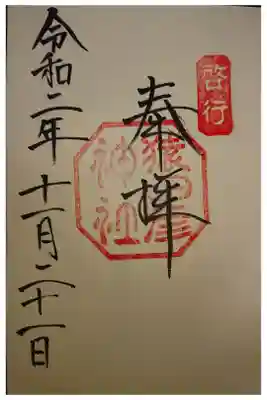 啓行
奉拝
猿田彦
神社
令和二年十一月二十一日